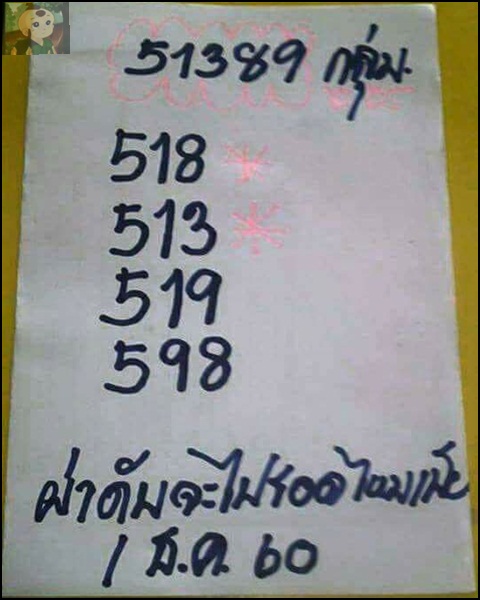 51389 กลุ่ม.
518
513
519
598
ผ่าดับจะไปรอดไหมเนี่ย
1 ธ.ค. 60